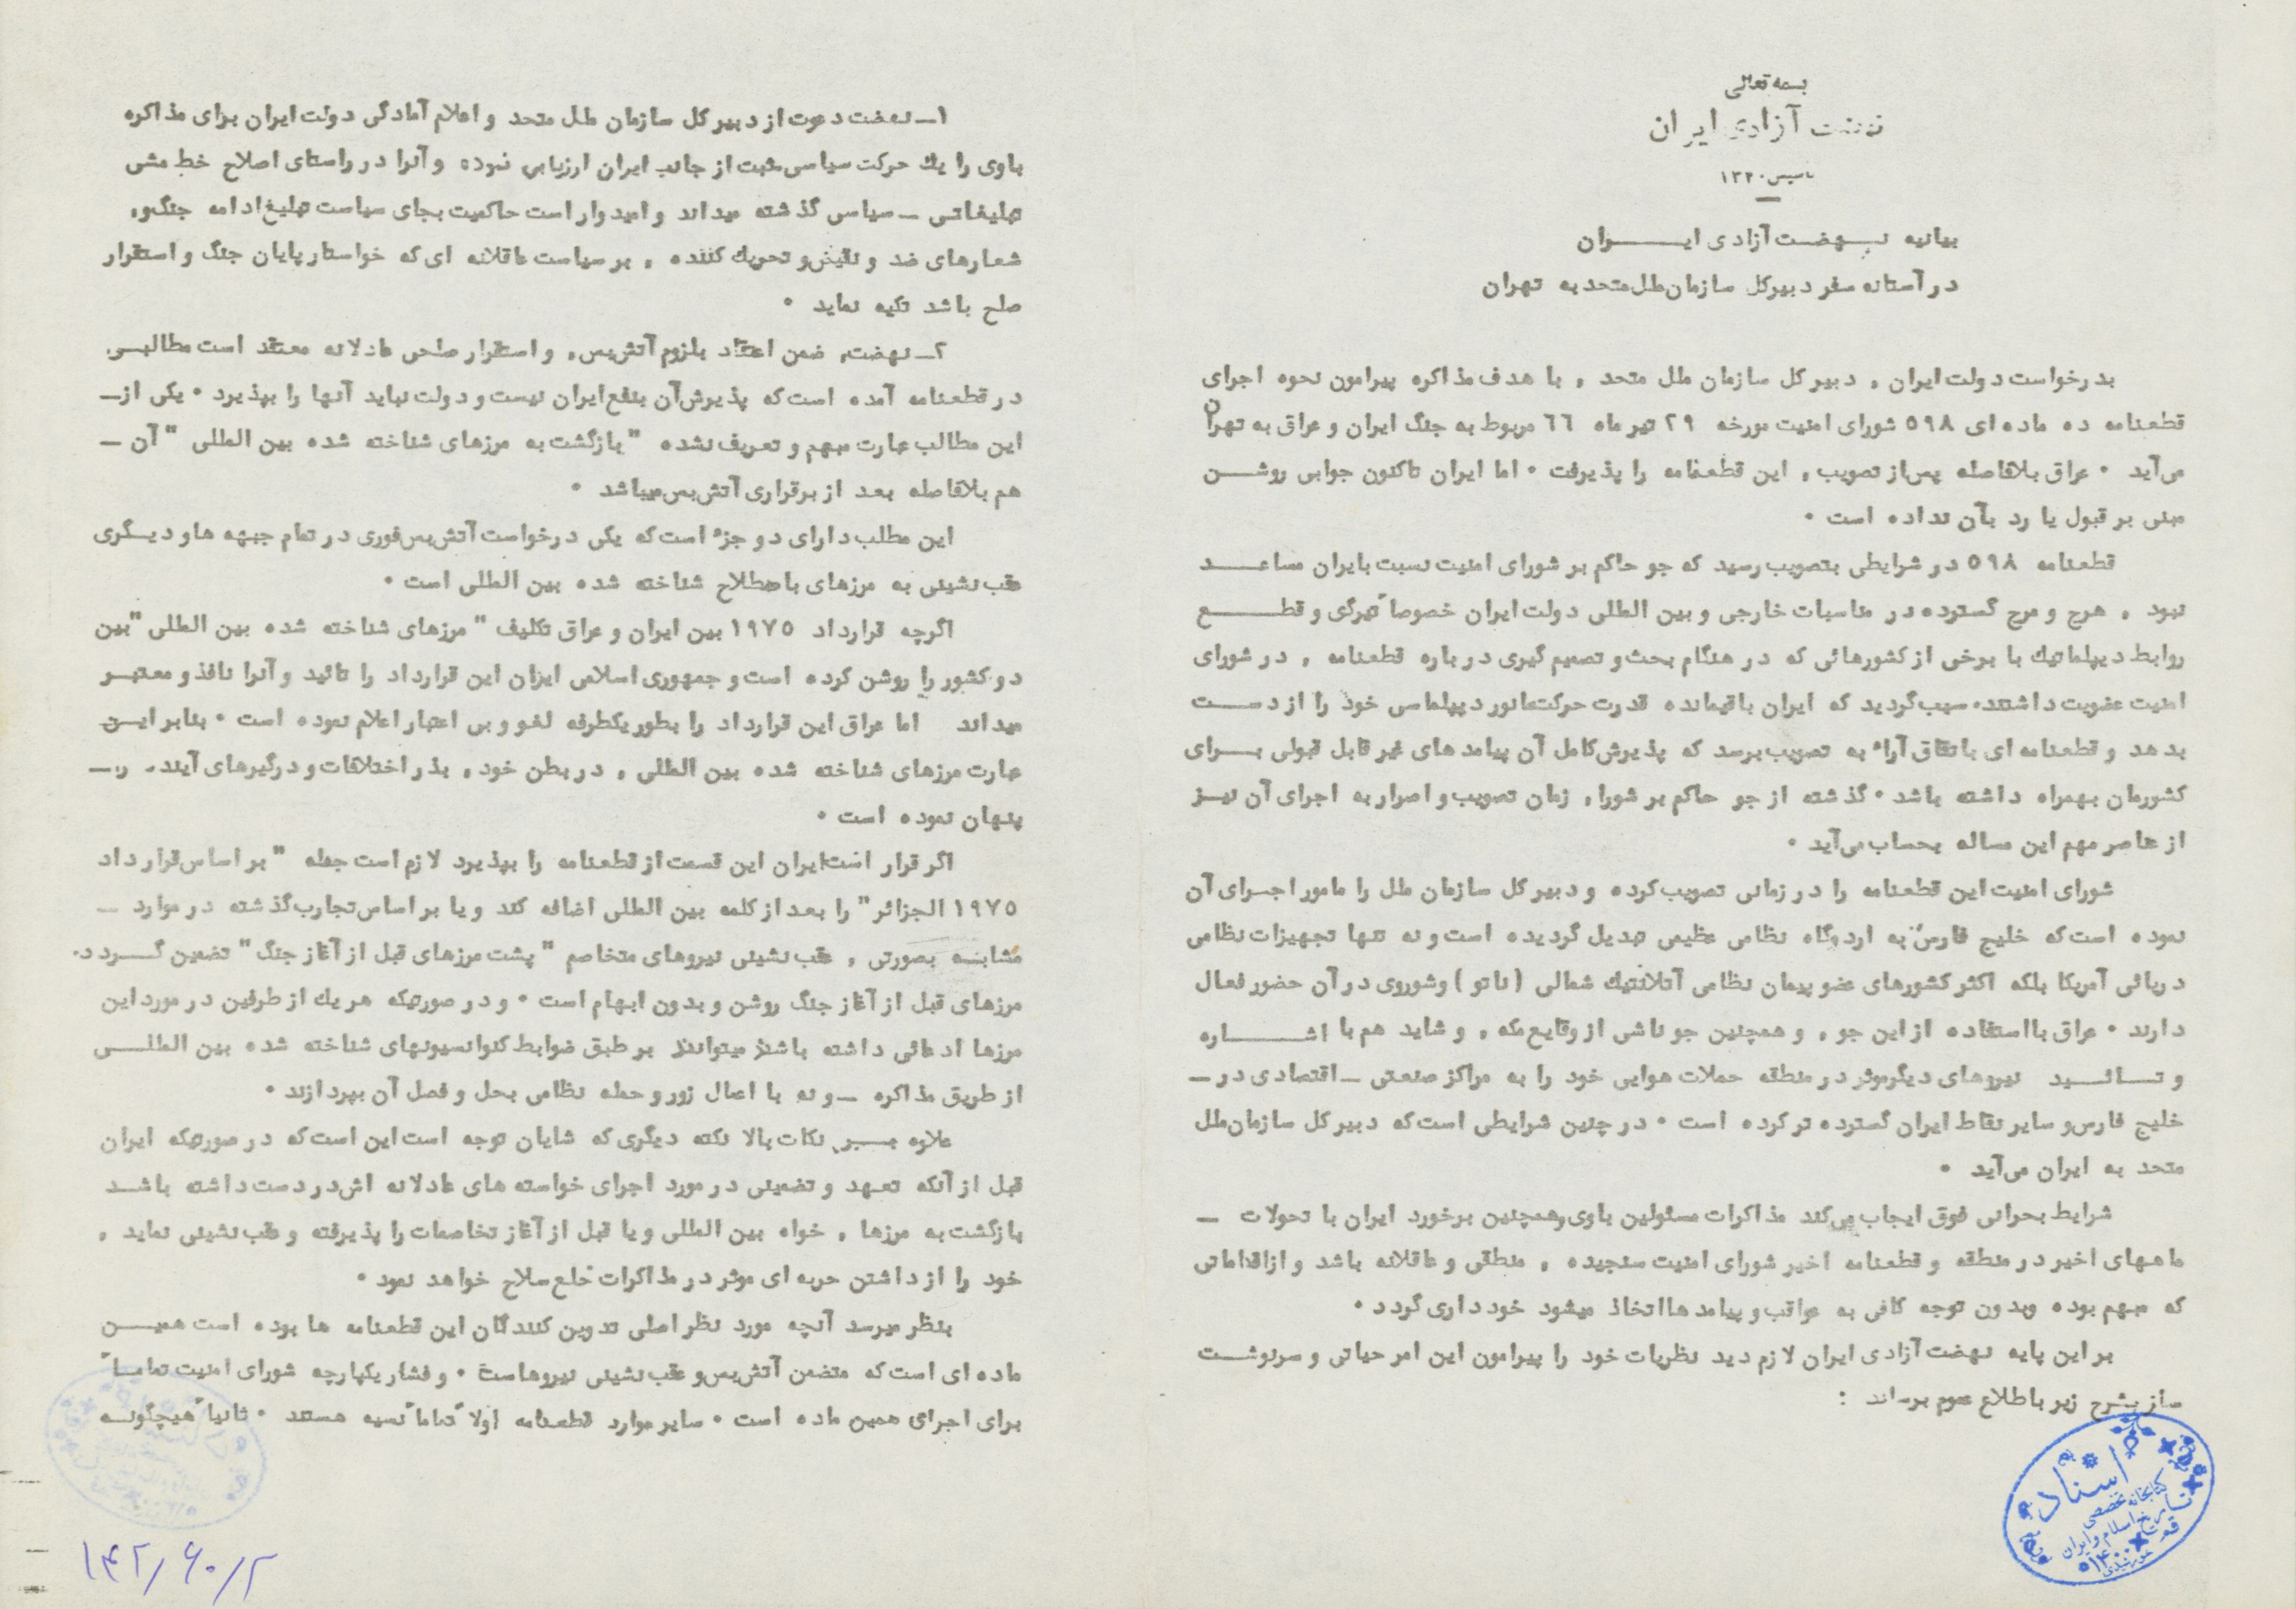 بسمه تعالی
نهضت آزادی ایران
تاسیس ۱۳۴۰
بیانیه نهضت آزادی ایران
در آستانه سفر دبیرکل سازمان ملل متحد به تهران
بدرخواست دولت ایران ، دبیر کل سازمان ملل متحد ، با هدف مذاکره پیرامون نحوه اجرای
قطعنامه ده ماده ای ۵۹۸ شورای امنیت مورخه ۲۹ تیر ماه ٦٦ مربوط به جنگ ایران و عراق به تهران
می‌آید . عراق بلافاصله پس از تصویب ، این قطعنامه را پذیرفت . اما ایران تاکنون جوابی روشن
مبنی بر قبول یا رد بآن نداده است .
قطعنامه ۵۹۸ در شرایطی بتصویب رسید که جو حاکم بر شورای امنیت نسبت بایران مساعد
نبود ، هرج و مرج گسترده در مناسبات خارجی و بین المللی دولت ایران خصوصاً تیرگی و قطع
روابط دیپلماتیك با برخی از کشورهائی که در هنگام بحث و تصمیم گیری در باره قطعنامه ، در شورای
امنیت عضویت داشتند، سبب گردید که ایران باقیمانده قدرت حرکت مانور دیپلماسی خود را از دست
بدهد و قطعنامه ای باتفاق آراء به تصویب برسد که پذیرش کامل آن پیامدهای غیر قابل قبولی برای
کشورمان بهمراه داشته باشد . گذشته از جو حاکم بر شورا، زمان تصویب و اصرار به اجرای آن نیز
از عناصر مهم این مساله بحساب می‌آید .
شورای امنیت این قطعنامه را در زمانی تصویب کرده و دبیر کل سازمان ملل را مامور اجرای آن
نموده است که خلیج فارس به اردوگاه نظامی عظیمی تبدیل گردیده است و نه تنها تجهیزات نظامی
دریائی آمریکا بلکه اکثر کشورهای عضو پیمان نظامی آتلانتیك شمالی ( ناتو ) و شوروی در آن حضور فعال
دارند . عراق بااستفاده از این جو ، و همچنین جو ناشی از وقایع مکه ، و شاید هم با اشاره
و تائید نیروهای دیگر موثر در منطقه حملات هوایی خود را به مراکز صنعتی - اقتصادی در -
خلیج فارس و سایر نقاط ایران گسترده تر کرده است . در چنین شرایطی است که دبیر کل سازمان ملل
متحد به ایران می‌آید .
شرایط بحرانی فوق ایجاب می‌کند مذاکرات مسئولین باوی و همچنین برخورد ایران با تحولات -
ماههای اخیر در منطقه و قطعنامه اخیر شورای امنیت سنجیده ، منطقی و عاقلانه باشد و ازاقداماتی
که مبهم بوده و بدون توجه کافی به عواقب و پیامدها اتخاذ میشود خودداری گردد .
بر این پایه نهضت آزادی ایران لازم دید نظریات خود را پیرامون این امر حیاتی و سرنوشت
ساز بشرح زیر باطلاع عموم برساند :
اسناد
کتابخانه تخصصی
تاریخ اسلام و ایران
قم
۱- نهضت دعوت از دبیر کل سازمان ملل متحد و اعلام آمادگی دولت ایران برای مذاکره
باوی را یك حرکت سیاسی مثبت از جانب ایران ارزیابی نموده و آنرا در راستای اصلاح خط مشی
تبلیغاتی - سیاسی گذشته میداند و امیدوار است حاکمیت بجای سیاست تبلیغ ادامه جنگ و،
شعارهای ضد و نقیض و تحریك کننده ، بر سیاست عاقلانه ای که خواستار پایان جنگ و استقرار
صلح باشد تکیه نماید .
۲- نهضت، ضمن اعتقاد بلزوم آتش بس، و استقرار صلحی عادلانه معتقد است مطالبی،
در قطعنامه آمده است که پذیرش آن بنفع ایران نیست و دولت نباید آنها را بپذیرد . یکی از-
این مطالب عبارت مبهم و تعریف نشده " بازگشت به مرزهای شناخته شده بین المللی " آن -
هم بلافاصله بعد از برقراری آتش بس میباشد .
این مطلب دارای دو جزء است که یکی درخواست آتش بس فوری در تمام جبهه ها و دیگری
عقب نشینی به مرزهای باصطلاح شناخته شده بین المللی است .
اگرچه قرارداد ۱۹۷۵ بین ایران و عراق تکلیف " مرزهای شناخته شده بین المللی " بین
دو کشور را روشن کرده است و جمهوری اسلامی ایران این قرارداد را تائید و آنرا نافذ و معتبر
میداند اما عراق این قرارداد را بطور یکطرفه لغو و بی اعتبار اعلام نموده است . بنابر این
عبارت مرزهای شناخته شده بین المللی ، در بطن خود ، بذر اختلافات و درگیرهای آینده را-
پنهان نموده است .
اگر قرار است ایران این قسمت از قطعنامه را بپذیرد لازم است جمله " بر اساس قرار داد
۱۹۷۵ الجزائر " را بعد از کلمه بین المللی اضافه کند و یا بر اساس تجارب گذشته در موارد -
مشابه بصورتی ، عقب نشینی نیروهای متخاصم " پشت مرزهای قبل از آغاز جنگ " تضمین گردد.
مرزهای قبل از آغاز جنگ روشن و بدون ابهام است . و در صورتیکه هر یك از طرفین در مورد این
مرزها ادعائی داشته باشند میتوانند بر طبق ضوابط کنوانسیونهای شناخته شده بین المللی
از طریق مذاکره - و نه با اعمال زور و حمله نظامی بحل و فصل آن بپردازند .
علاوه بر نکات بالا نکته دیگری که شایان توجه است این است که در صورتیکه ایران
قبل از آنکه تعهد و تضمینی در مورد اجرای خواسته های عادلانه اش در دست داشته باشد
بازگشت به مرزها ، خواه بین المللی و یا قبل از آغاز تخاصمات را پذیرفته و عقب نشینی نماید ،
خود را از داشتن حربه ای موثر در مذاکرات خلع سلاح خواهد نمود .
بنظر میرسد آنچه مورد نظر اصلی تدوین کنندگان این قطعنامه ها بوده است همین
ماده ای است که متضمن آتش بس و عقب نشینی نیروهاست . و فشار یکپارچه شورای امنیت تماماً
برای اجرای همین ماده است . سایر موارد قطعنامه اولاً تماماً نسیه هستند . ثانیاً هیچگونه
۱۴۲/۶۰/۲